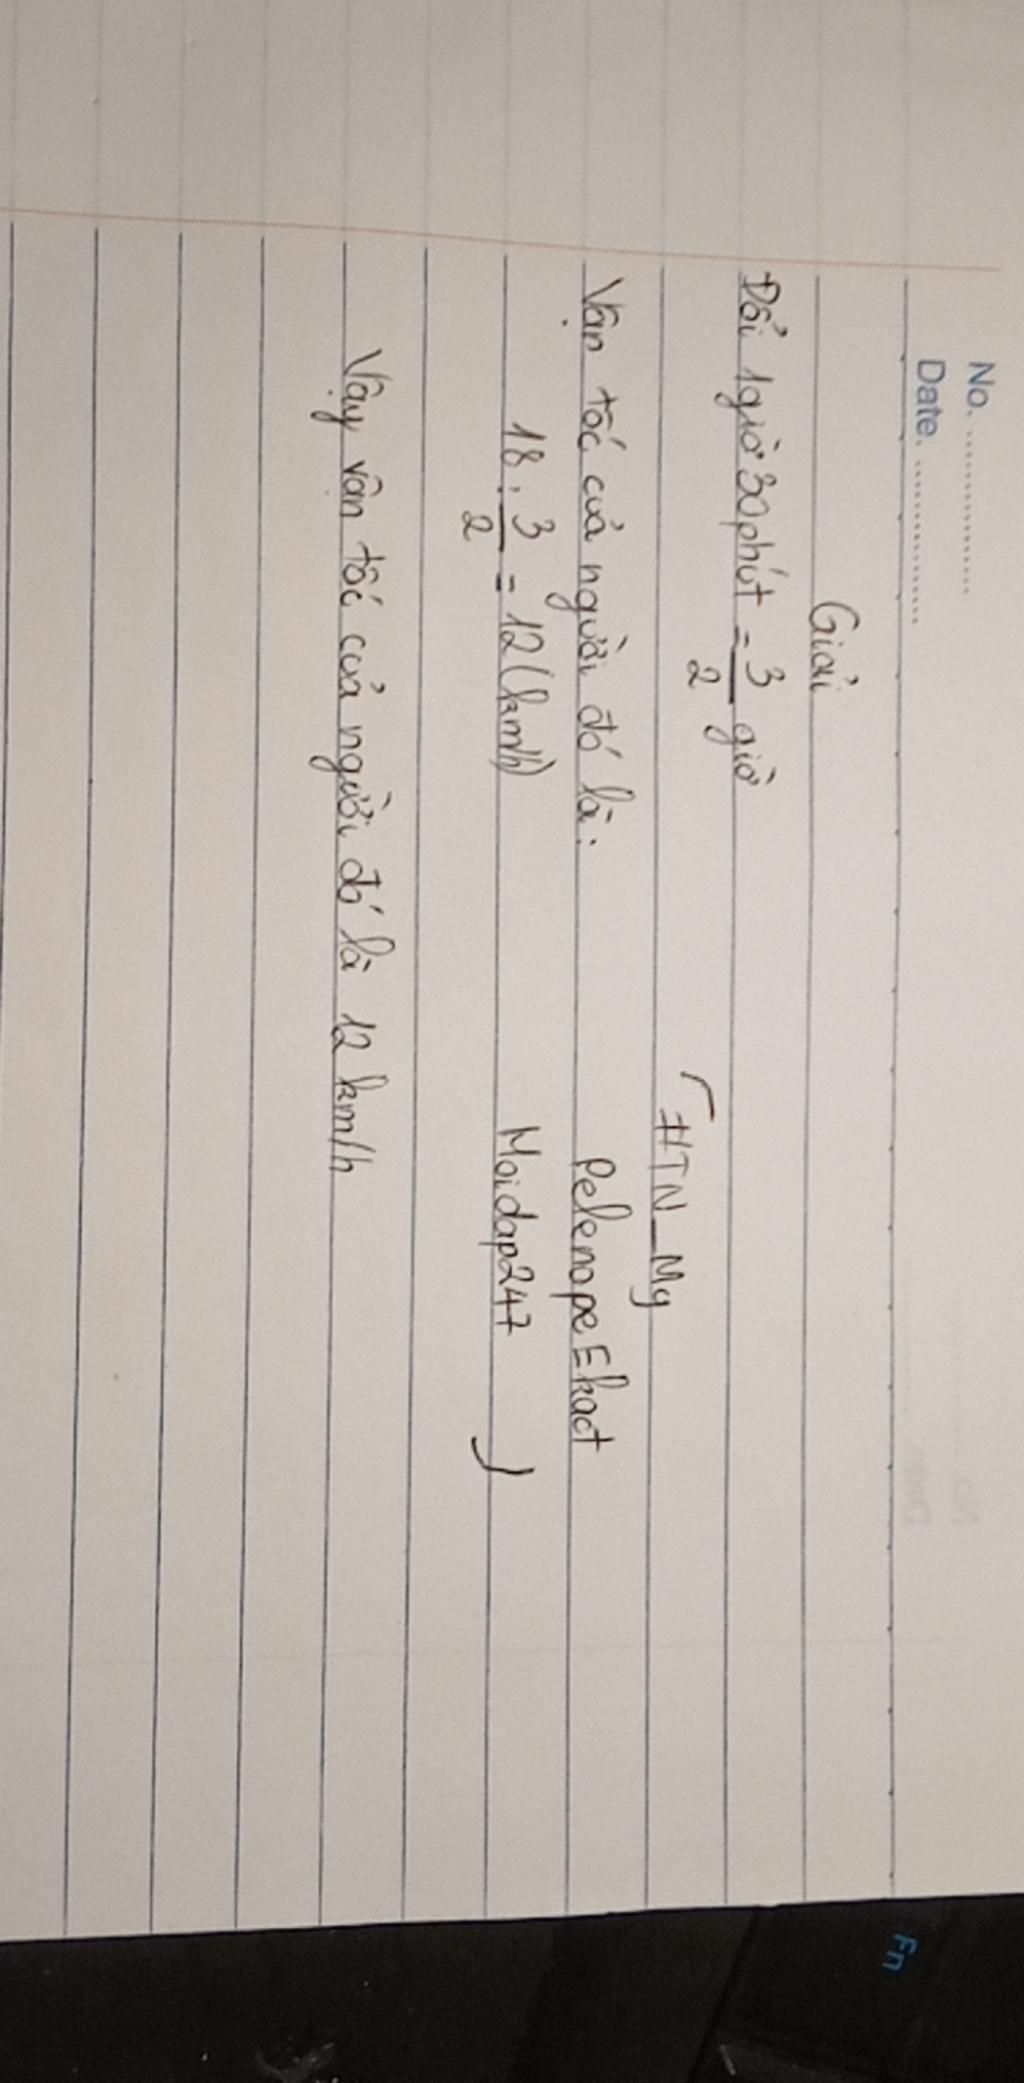 No. ................
Date. ................
Giải
Đổi 1giờ 30phút = 3/2 giờ
#TN_My
Vận tốc của người đó là: PelenopeEkact
18 : 3/2 = 12 (km/h) Moidap247
Vậy vận tốc của người đó là 12 km/h
Fn